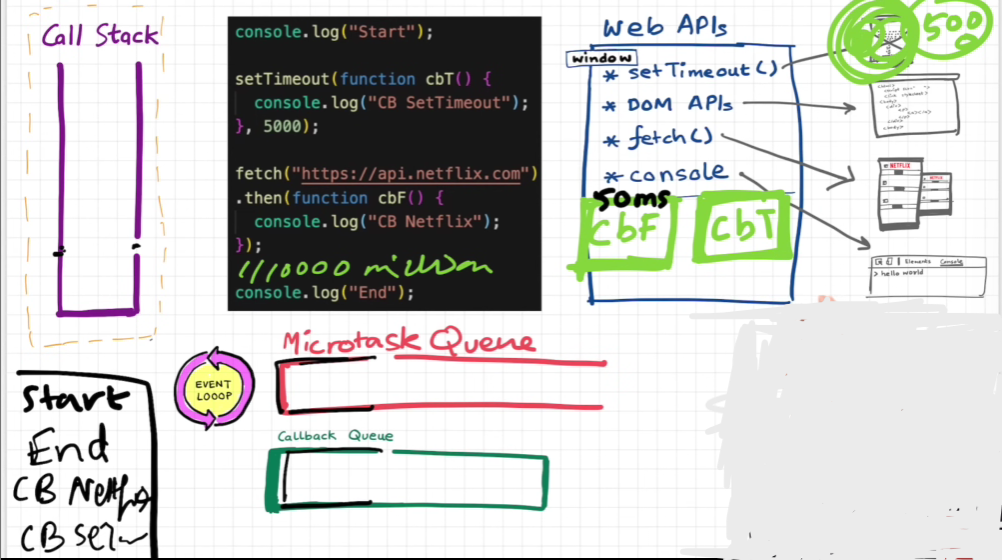 Call Stack
console.log("Start");
setTimeout(function cbT() {
console.log("CB SetTimeout");
}, 5000);
fetch("https://api.netflix.com")
.then(function cbF() {
console.log("CB Netflix");
});
10000 million
console.log("End");
Web APIs
window
* setTimeout()
* DOM APIs
* fetch()
* console
50ms
CbF
CbT
500
NETFLIX
Elements Console
> hello world
EVENT
LOOOP
Microtask Queue
Callback Queue
Start
End
CB Netf
CB set